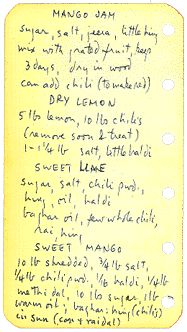 MANGO JAM
sugar, salt, jeera, little hing
mix with grated fruit, keep
3 days, dry in wood
can add chili (to make red)
DRY LEMON
5 lb lemon, 10 lb chili's
(remove soon & treat)
1-1 1/4 lb salt, little haldi
SWEET LIME
sugar, salt, chili pwd.,
hing, oil, haldi
baghar oil, few whole chili,
rai, hing
SWEET MANGO
10 lb shredded, 3/4 lb salt,
1/4 lb chili pwd. 1/8 haldi, 1/4 lb
methi dal, 10 lb sugar, 1 lb
warm oil, baghar: hing (chili's)
in sun (can y rai dal)